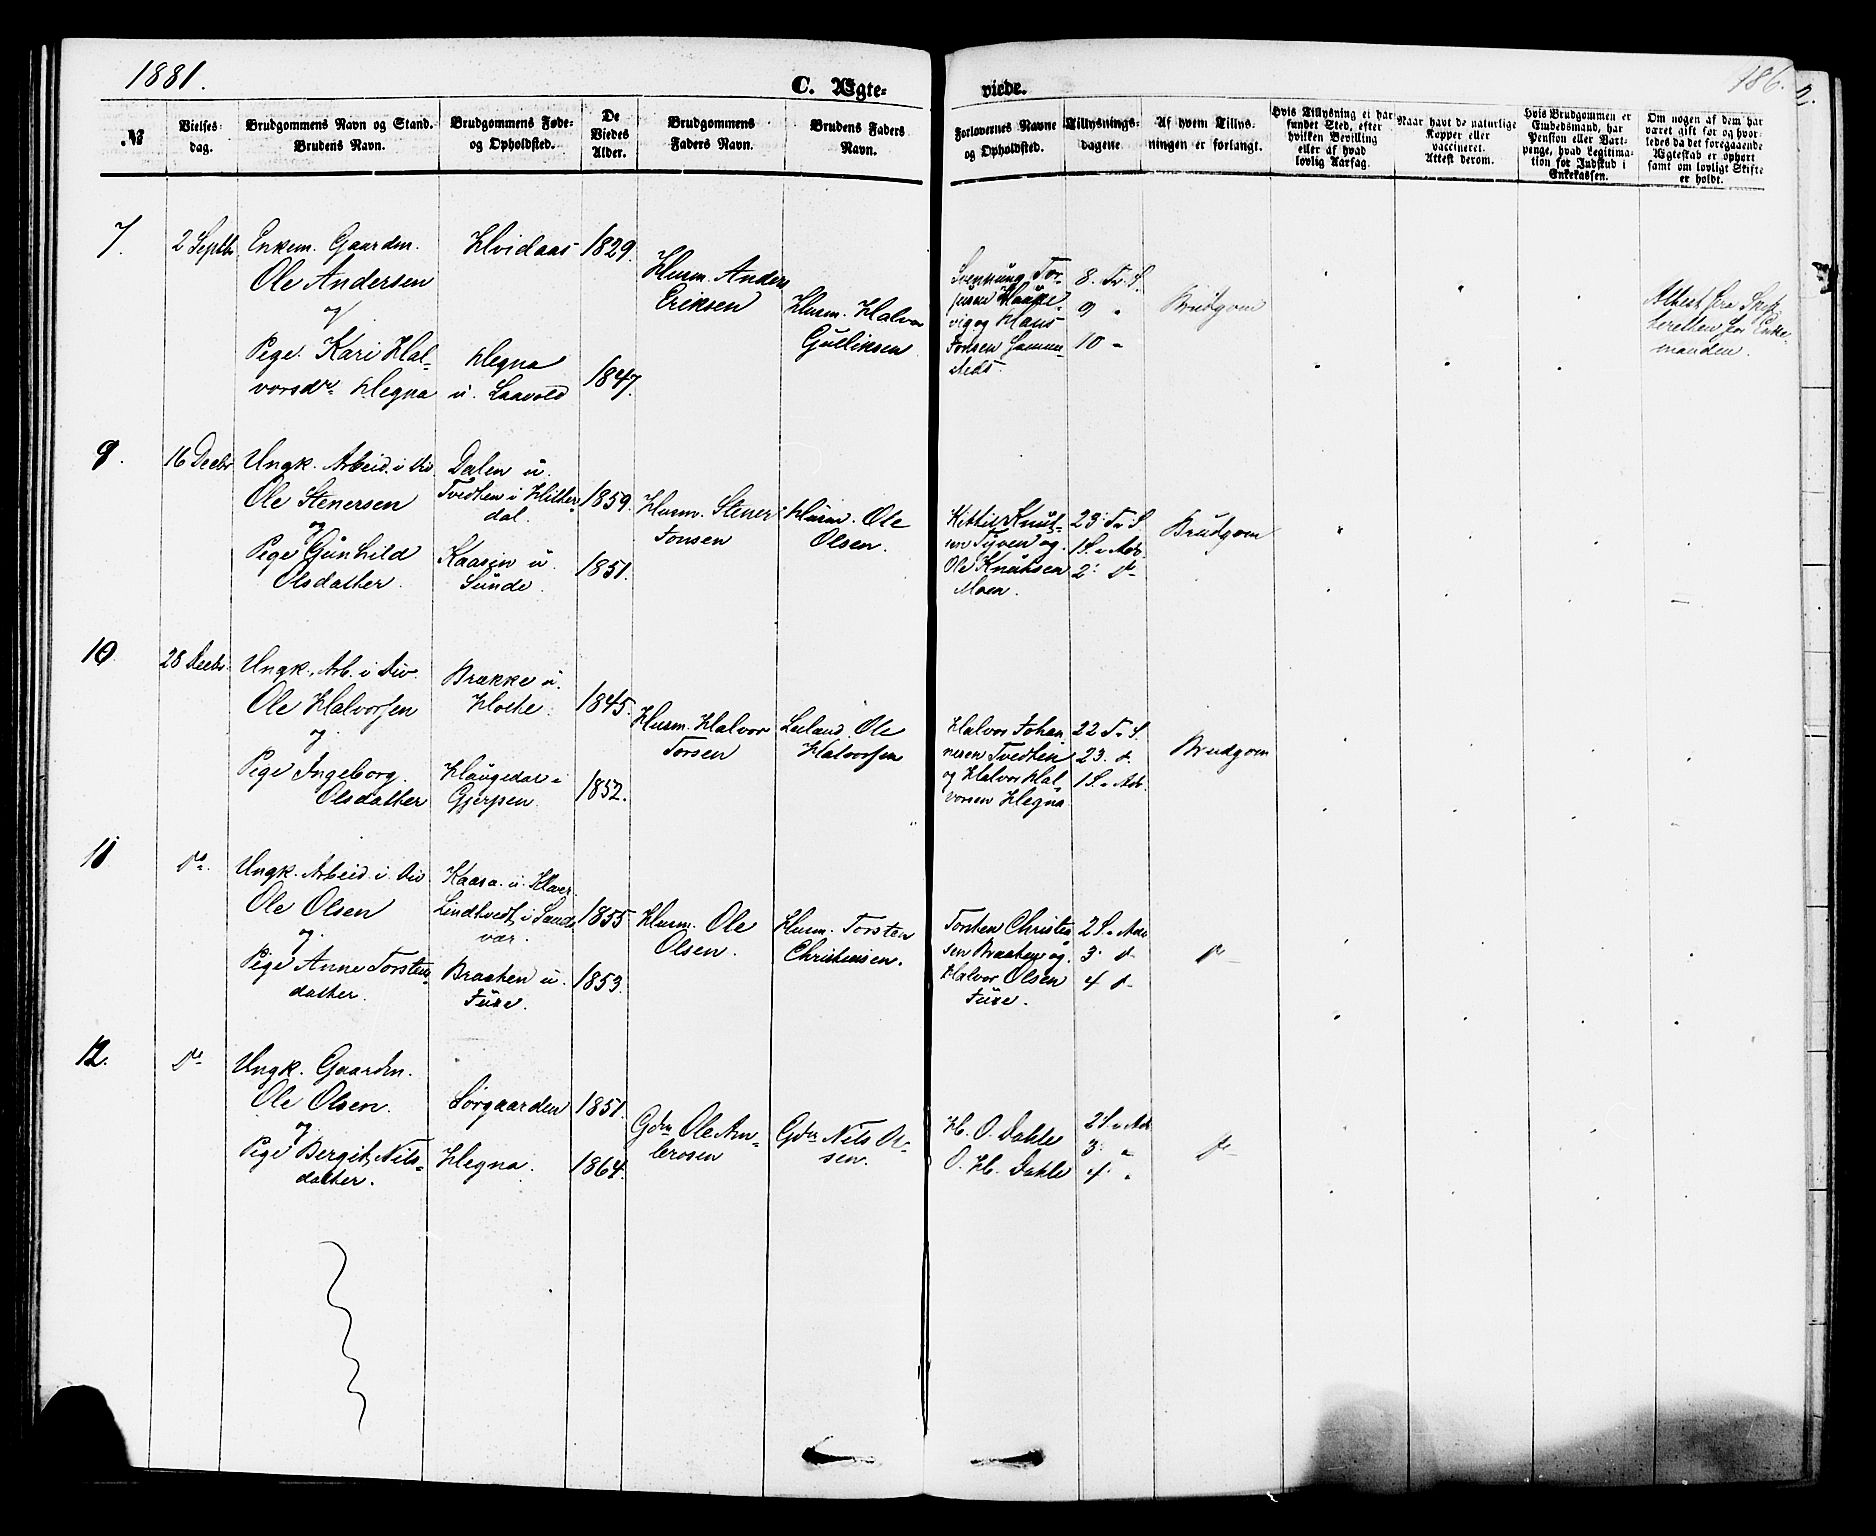 1881.
C. Ægte-
viede.
186.
№
Vielses-
dag.
Brudgommens Navn og Stand.
Brudens Navn.
Brudgommens Føde-
og Opholdsted.
De
Viedes
Alder.
Brudgommens
Faders Navn.
Brudens Faders
Navn.
Forlovernes Navne
og Opholdsted.
Tillysnings-
dagene.
Af hvem Tillys-
ningen er forlangt.
Hvis Tillysning ei har
fundet Sted, efter
hvilken Bevilling
eller af hvad
lovlig Aarsag.
Naar havt de naturlige
Kopper eller
vaccineret.
Attest derom.
Hvis Brudgommen er
Embedsmand, har
Pension eller Vart-
penge, hvad Legitima-
tion for Indskud i
Enkekassen.
Om nogen af dem har
været gift før og hvor-
ledes da det foregaaende
Ægteskab er ophørt
samt om lovligt Skifte
er holdt.
7.
2 Septbr
Enkem. Gaardm.
Ole Andersen
og
Pege. Kari Hal-
vorsdr. Hegna
Hvidaas
Hegna
u. Laavold
1829.
1847.
Husm. Anders
Eriksen
Husm. Halvor
Gulliksen
Svennung Tor-
jusen Hauke-
vig og Hans
Jonsen
8. Tr. S.
9 "
10 "
Brudgom
Attest fra Skif-
teretten for Enke-
manden.
9.
16 Decbr
Ungk. Arbeid. i Div
Ole Stenersen
og
Pege Gunhild
Olsdatter.
Dalen u.
Tvedten i Hitter-
dal.
Kaasin u.
Sunde.
1859.
1851.
Husm. Stener
Jonsen
Husm. Ole
Olsen.
Kittil Knut-
sen Tyven og
Ole Knutsen
Moen.
23. Tr. S.
1 S. i Adv.
2. do
Brudgom
10.
28 Decbr.
Ungk. Arb. i Div.
Ole Halvorsen
og.
Pege Ingeborg.
Olsdatter
Brække u.
Holte.
Haugedal i
Gjerpen.
1845.
1852.
Husm. Halvor
Torsen
Leiland. Ole
Halvorsen
Halvor Johan
nesen Tvedten
og Halvor Hal-
vorsen Hegna
22 Tr. S.
23. d.
1 S. i Adv.
Brudgom
11
do.
Ungk. Arbeid. i. Div
Ole Olsen
og.
Pege Anne Torstens-
datter.
Kaasa. u. Haver.
Lindtvedt i Sande-
vær.
Braaten u.
Jure.
1855
1853.
Husm. Ole
Olsen.
Husm. Torsten
Christensen.
Torsten Christen
sen Braaten og.
Halvor Olsen
Jure.
2 S. i Adv
3. d-
4 d-
do
12.
do
Ungk. Gaardm.
Ole Olsen.
og.
Pege Bergit Nils-
datter.
Sørgaarden
Hegna.
1851.
1864.
Gdm Ole Am-
brosen
Gdm Nils Ol-
sen.
H. O. Dahle
O. H. Dahle
2 S. i Adv.
3. "
4. "
do